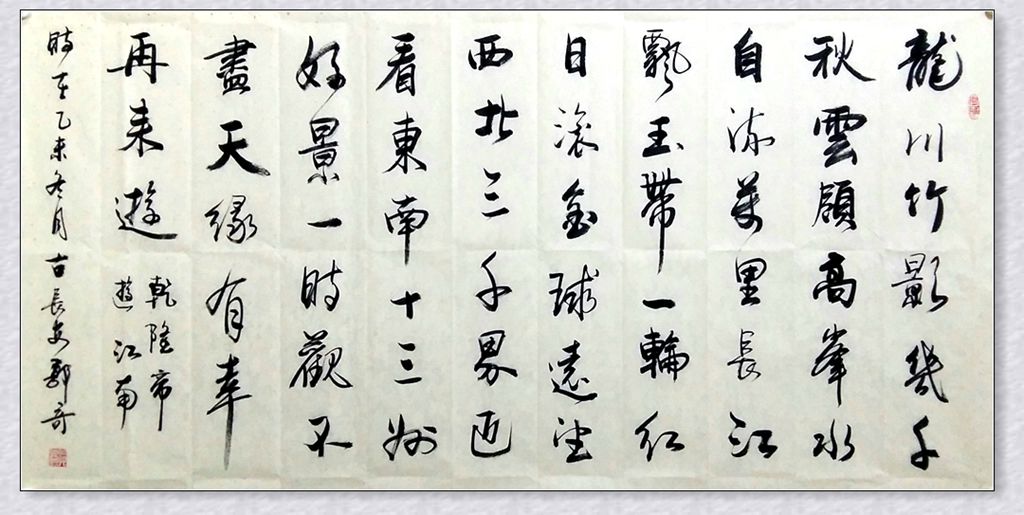 龍川竹影幾千
秋雲顧高峯水
自流萬里長江
飄玉帶一輪紅
日滾金球遠望
西北三千界近
看東南十三州
好景一時觀不
盡天緣有幸
再来遊
乾隆帝
遊江南
時在乙未冬月古長安